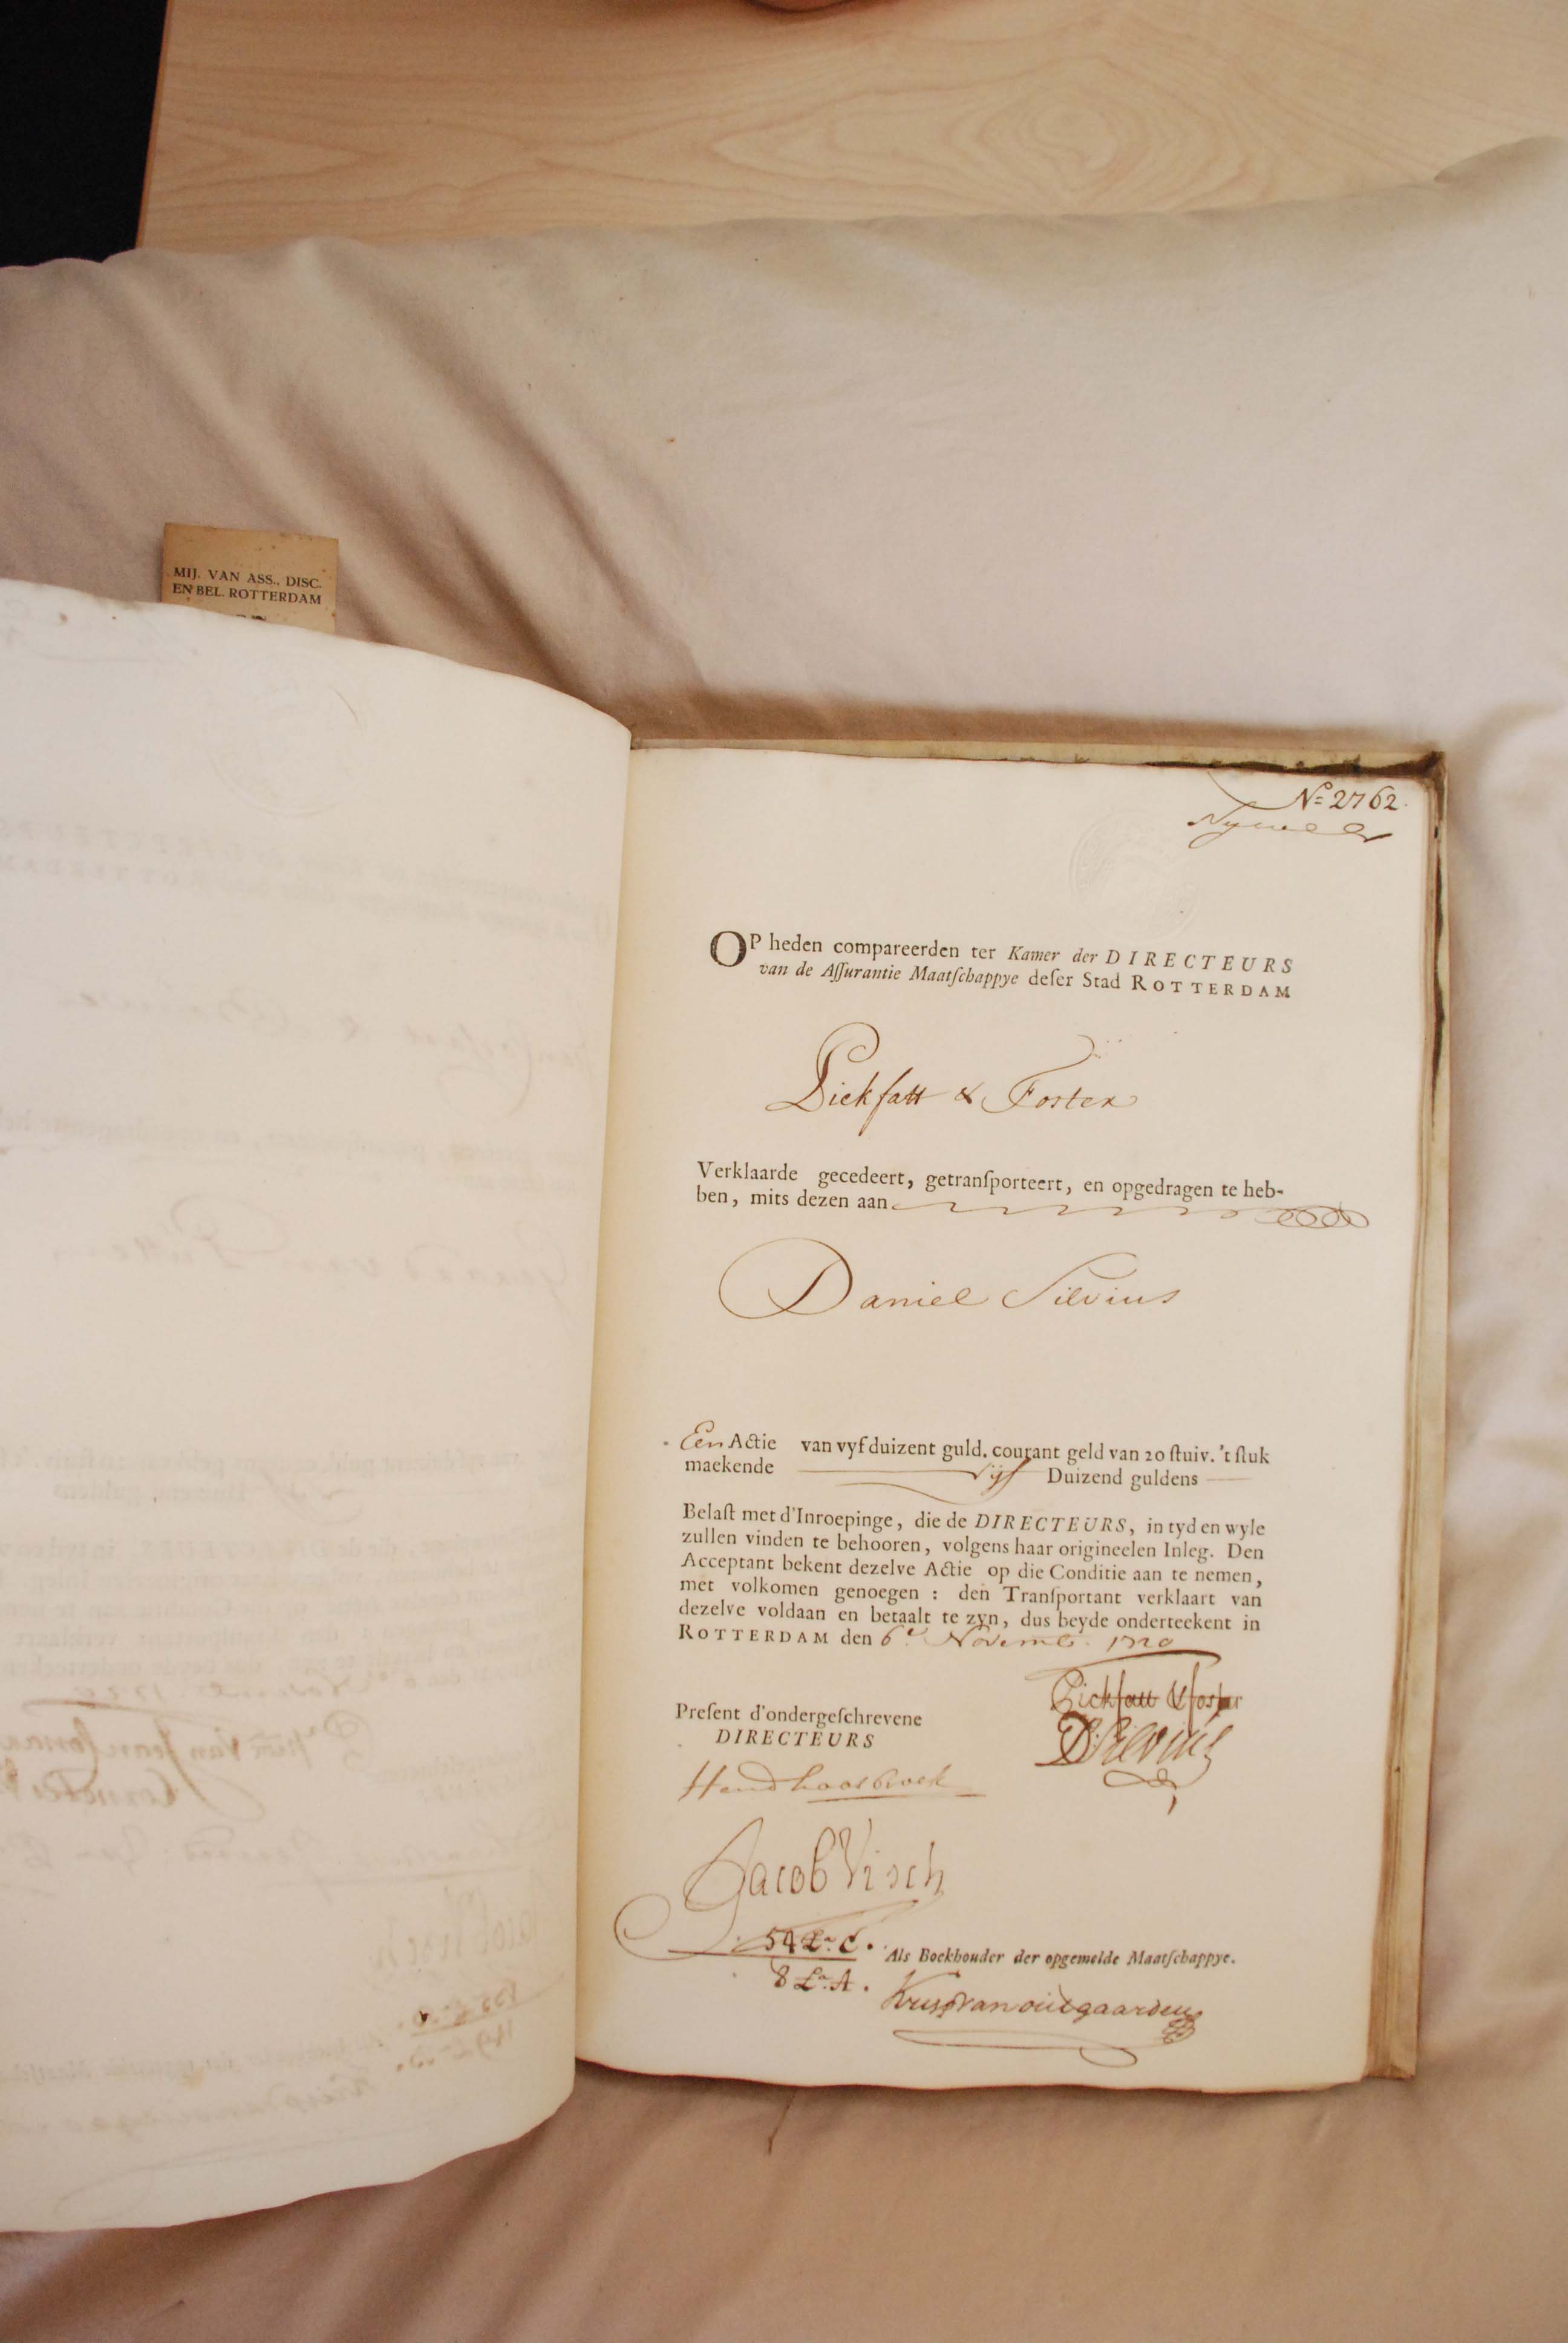 MIJ. VAN ASS., DISC.
EN BEL. ROTTERDAM
No 2762.
OP heden compareerden ter Kamer der DIRECTEURS
van de Aſſurantie Maatſchappye deſer Stad ROTTERDAM
Pickfatt & Foster
Verklaarde gecedeert, getranſporteert, en opgedragen te heb-
ben, mits dezen aan
Daniel Silvius
Een Actie van vyf duizent guld. courant geld van 20 ſtuiv. 't ſtuk
maekende Vijf Duizend guldens
Belaſt met d'Inroepinge, die de DIRECTEURS, in tyd en wyle
zullen vinden te behooren, volgens haar origineelen Inleg. Den
Acceptant bekent dezelve Actie op die Conditie aan te nemen,
met volkomen genoegen : den Tranſportant verklaart van
dezelve voldaan en betaalt te zyn, dus beyde onderteekent in
ROTTERDAM den 6e Novemb. 1720
Pickfatt & foster
Preſent d'ondergeſchrevene
DIRECTEURS
D: Silvius
Jacob Visch
54 La C.
Als Boekhouder der opgemelde Maatſchappye.
8 La A.